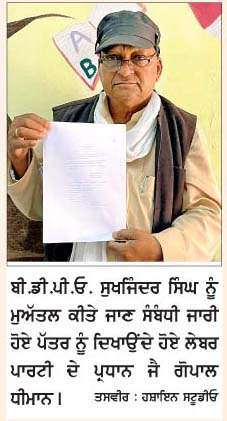 A
B
ਬੀ.ਡੀ.ਪੀ.ਓ. ਸੁਖਜਿੰਦਰ ਸਿੰਘ ਨੂੰ
ਮੁਅੱਤਲ ਕੀਤੇ ਜਾਣ ਸੰਬੰਧੀ ਜਾਰੀ
ਹੋਏ ਪੱਤਰ ਨੂੰ ਦਿਖਾਉਂਦੇ ਹੋਏ ਲੇਬਰ
ਪਾਰਟੀ ਦੇ ਪ੍ਰਧਾਨ ਜੈ ਗੋਪਾਲ
ਧੀਮਾਨ। ਤਸਵੀਰ : ਹਸ਼ਾਇਨ ਸਟੂਡੀਓ